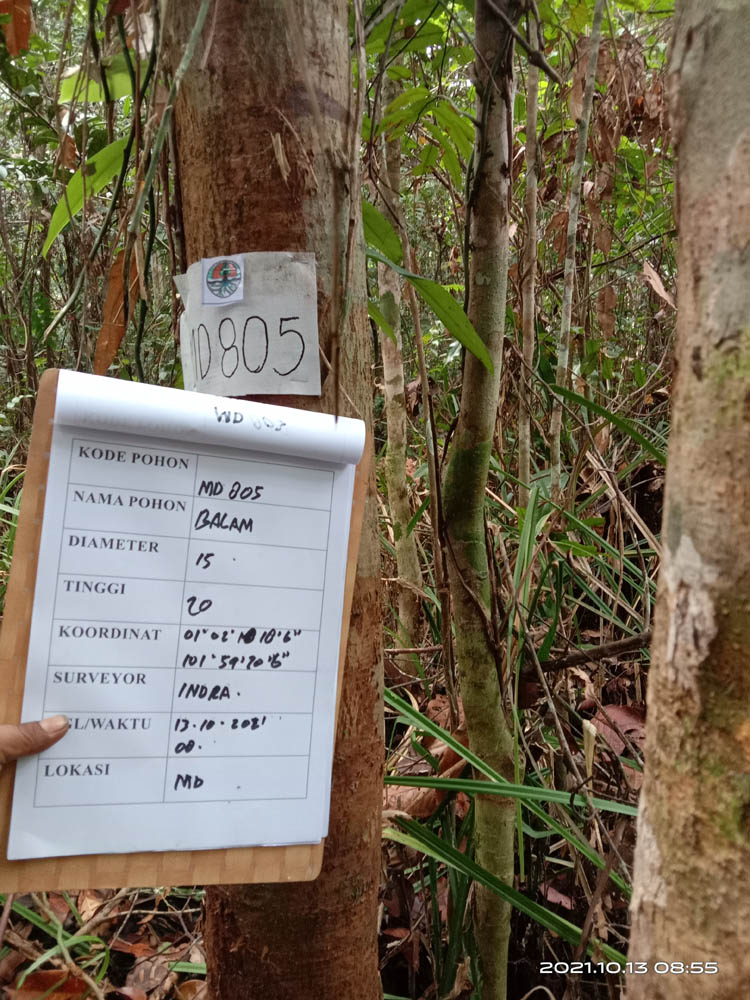 MD805
KODE POHON MD 805
NAMA POHON BALAM
DIAMETER 15
TINGGI 20
KOORDINAT
101° 59' 20'6"
SURVEYOR INDRA.
GL/WAKTU 13.10.2021
00.
LOKASI MD
2021.10.13 08:55